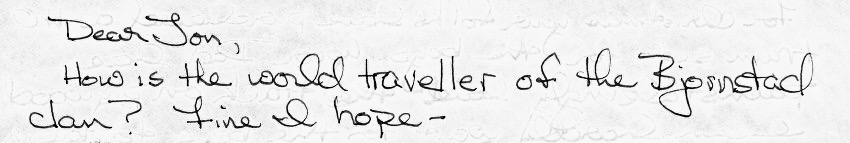 Dear Jon,
How is the world traveller of the Bjornstad
clan? Fine I hope -